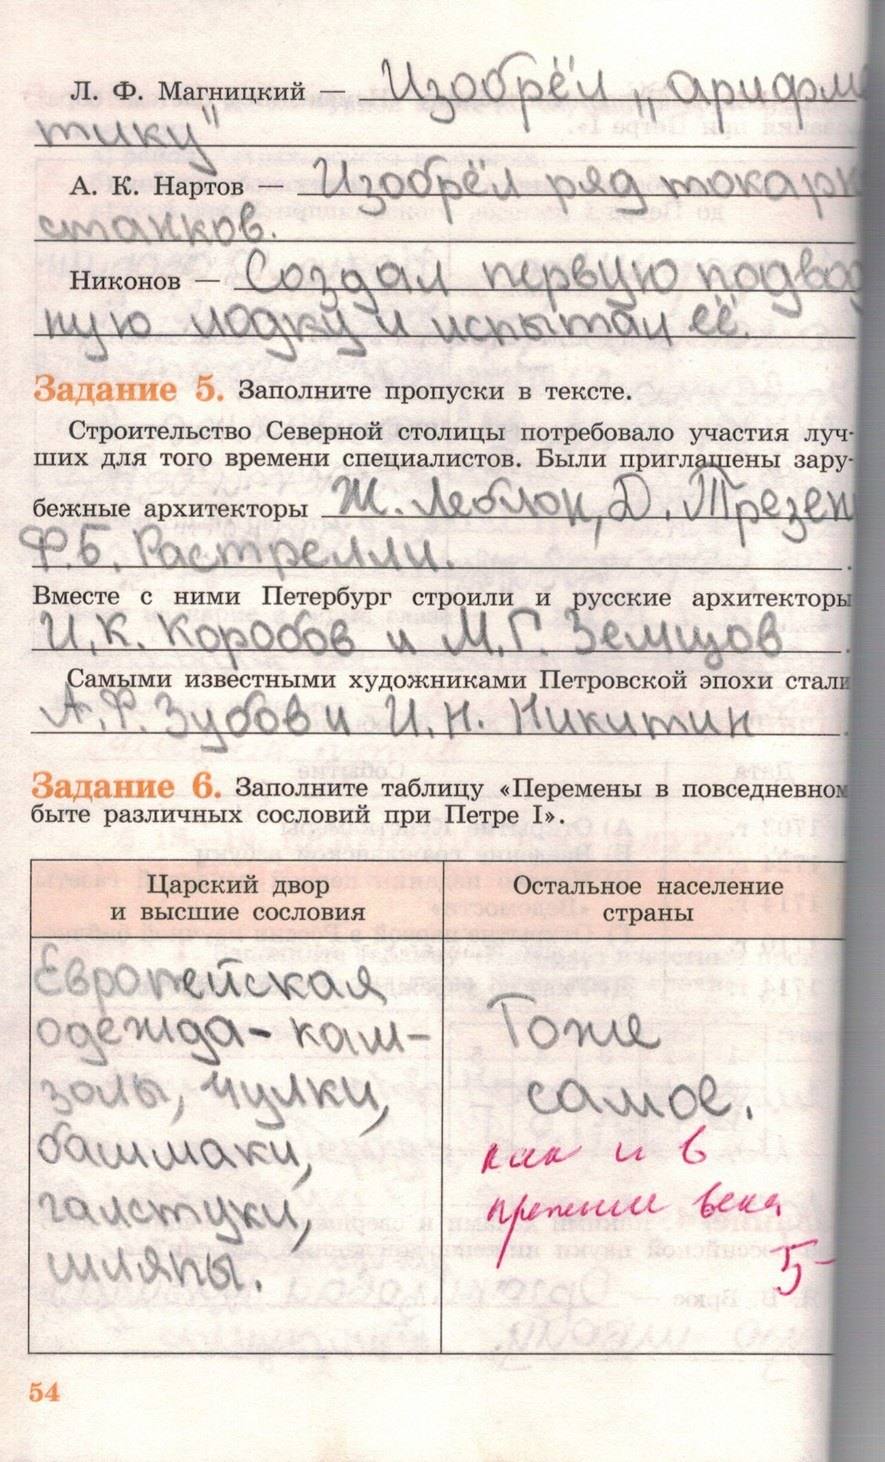 Л. Ф. Магницкий — Изобрёл „арифме
тику"
А. К. Нартов — Изобрёл ряд токарн
станков.
Никонов — Создал первую подвод
ную лодку и испытал её.
Задание 5. Заполните пропуски в тексте.
Строительство Северной столицы потребовало участия луч-
ших для того времени специалистов. Были приглашены зару-
бежные архитекторы Ж. Леблон, Д. Трезен
Ф.Б. Растрелли.
Вместе с ними Петербург строили и русские архитекторы
И.К. Коробов и М.Г. Земцов .
Самыми известными художниками Петровской эпохи стали
А.Ф. Зубов и И.Н. Никитин .
Задание 6. Заполните таблицу «Перемены в повседневном
быте различных сословий при Петре I».
Царский двор
и высшие сословия
Остальное население
страны
Европейская
одежда- кам-
золы, чулки,
башмаки,
галстуки,
шляпы.
Тоже
самое.
как и в
прежние века
5-
54